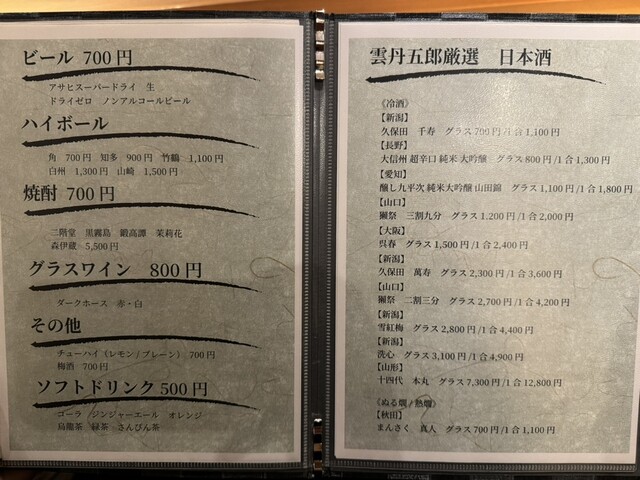 ビール 700円
アサヒスーパードライ 生
ドライゼロ ノンアルコールビール
ハイボール
角 700円 知多 900円 竹鶴 1,100円
白州 1,300円 山崎 1,500円
焼酎 700円
二階堂 黒霧島 鍛高譚 茉莉花
森伊蔵 5,500円
グラスワイン 800円
ダークホース 赤・白
その他
チューハイ（レモン/プレーン） 700円
梅酒 700円
ソフトドリンク 500円
コーラ ジンジャーエール オレンジ
烏龍茶 緑茶 さんぴん茶
雲丹五郎厳選 日本酒
《冷酒》
【新潟】
久保田 千寿 グラス 700円/1合 1,100円
【長野】
大信州 超辛口 純米大吟醸 グラス 800円/1合 1,300円
【愛知】
醸し九平次 純米大吟醸 山田錦 グラス 1,100円/1合 1,800円
【山口】
獺祭 三割九分 グラス 1,200円/1合 2,000円
【大阪】
呉春 グラス 1,500円/1合 2,400円
【新潟】
久保田 萬寿 グラス 2,300円/1合 3,600円
【山口】
獺祭 二割三分 グラス 2,700円/1合 4,200円
【新潟】
雪紅梅 グラス 2,800円/1合 4,400円
【新潟】
洗心 グラス 3,100円/1合 4,900円
【山形】
十四代 本丸 グラス 7,300円/1合 12,800円
《ぬる燗/熱燗》
【秋田】
まんさく 真人 グラス 700円/1合 1,100円